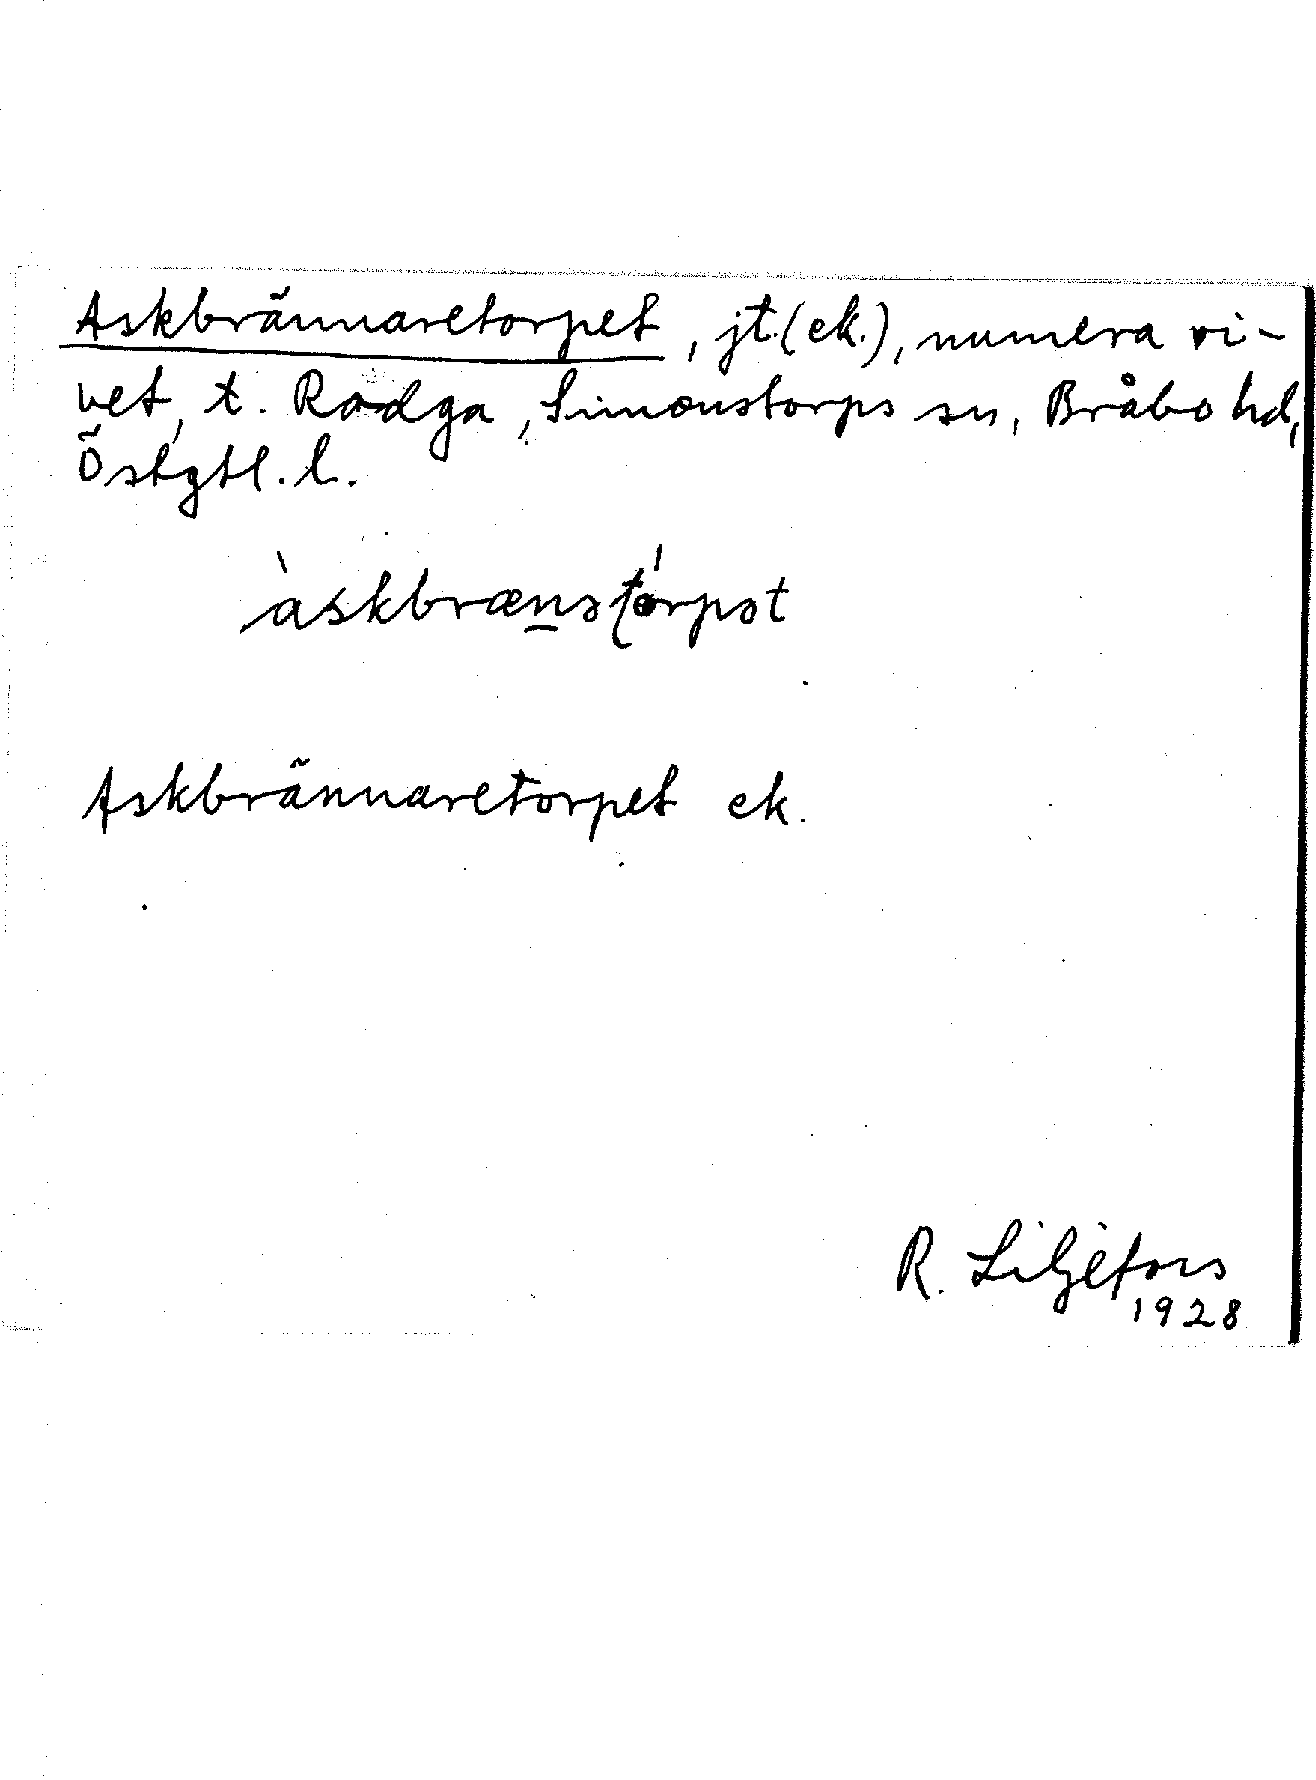 Askbrännaretorpet, jt.(ek.), numera ri-
vet, t. Rodga, Simonstorps sn, Bråbo hd,
Östgtl. l.
àskbrænətórpət
Askbrännaretorpet ek.
R. Liljefors
1928